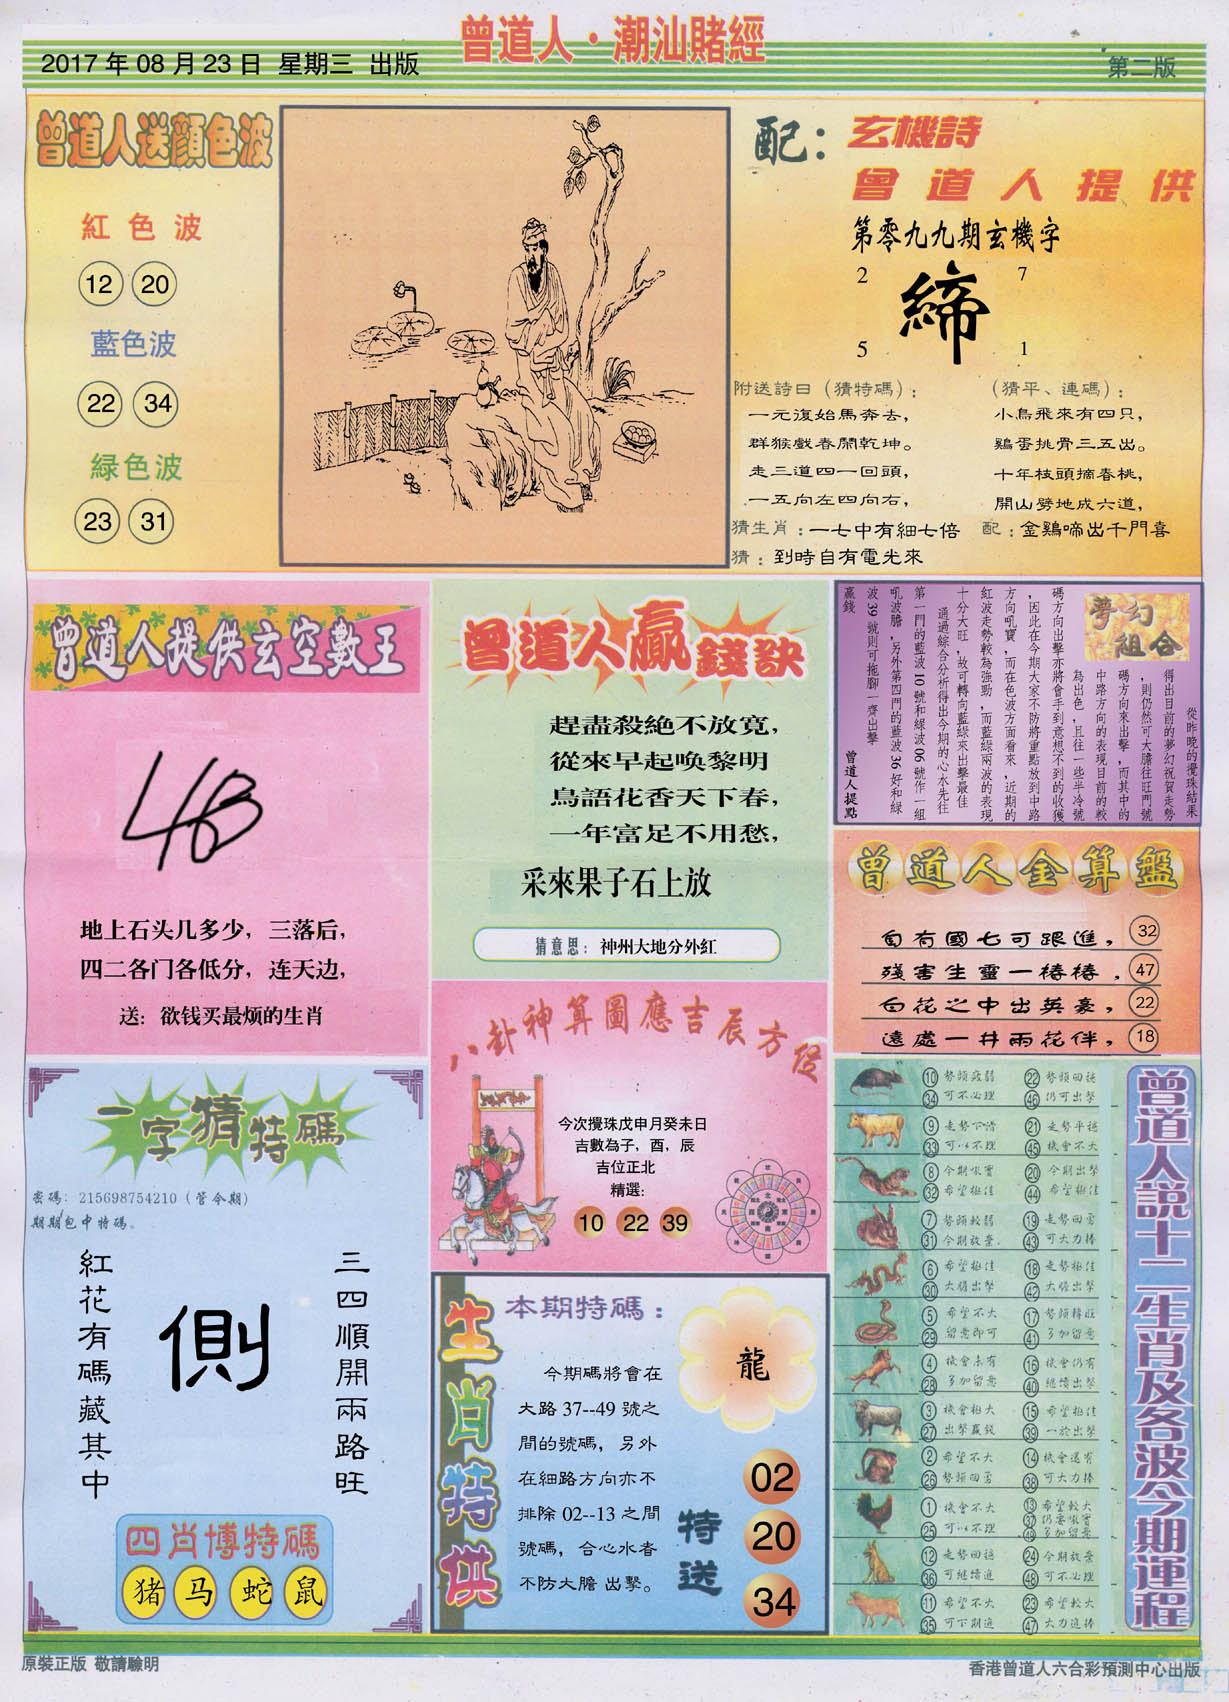 曾道人·潮汕賭經
2017 年 08 月 23 日 星期三 出版
第二版
曾道人送顏色波
紅色波
12 20
藍色波
22 34
緑色波
23 31
配：玄機詩
曾道人提供
第零九九期玄機字
2 7
締
5 1
附送詩曰（猜特碼）：
一元復始馬奔去，
群猴戲春鬧乾坤。
走三道四一回頭，
一五向左四向右，
（猜平、連碼）：
小鳥飛來有四只，
鷄蛋挑骨三五出。
十年枝頭摘春桃，
開山劈地成六道，
猜生肖：一七中有細七倍
配：金鷄啼出千門喜
猜：到時自有電光來
曾道人提供玄空數王
地上石头几多少，三落后，
四二各门各低分，连天边，
送：欲钱买最烦的生肖
曾道人贏錢訣
趕盡殺絶不放寬，
從來早起喚黎明
鳥語花香天下春，
一年富足不用愁，
采來果子石上放
猜意思：神州大地分外紅
夢幻組合
從昨晚的攪珠結果
得出目前的夢幻祝賀走勢
，則仍然可大膽往旺門號
碼方向來出擊，而其中的
中路方向的表現目前的較
為出色，且往一些半冷號
碼方向出擊亦將會手到意想不到的收獲
，因此在今期大家不防將重點放到中路
方向吼寶，而在色波方面看來，近期的
紅波走勢較為強勁，而藍綠兩波的表現
十分大旺，故可轉向藍綠來出擊最佳
通過綜合分析得出今期的心水先往
第一門的藍波 10 號和緑波 06 號作一組
吼波膽，另外第四門的藍波 36 好和緑
波 39 號則可拖腳一齊出擊
贏錢
曾道人提點
曾道人金算盤
自有國七可跟進， 32
殘害生靈一樁樁． 47
白花之中出英豪， 22
遠處一井兩花伴， 18
八卦神算圖應吉辰方位
今次攪珠戊申月癸未日
吉數為子，酉，辰
吉位正北
精選：
10 22 39
一字猜特碼
密碼：215698754210（管今期）
期期包中特碼。
三四順開兩路旺
側
紅花有碼藏其中
四肖博特碼
猪 马 蛇 鼠
生肖特供
本期特碼：
龍
今期碼將會在
大路 37--49 號之
間的號碼，另外
在細路方向亦不
排除 02--13 之間
號碼，合心水者
不防大膽 出擊。
特送
02
20
34
曾道人説十二生肖及各波今期運程
10 勢頭疲弱 22 勢頭回穩
34 可不必理 46 仍可出擊
9 走勢下滑 21 走勢平穩
33 可以不理 45 機會不大
8 今期吼寶 20 今期出擊
32 希望極佳 44 希望極佳
7 勢頭較弱 19 走勢回勇
31 今期放棄 43 可大力捧
6 希望極佳 18 走勢極佳
30 大膽出擊 42 大膽出擊
5 希望不大 17 勢頭轉旺
29 留意即可 41 多加留意
4 機會未有 16 機會仍有
28 多加留意 40 繼續出擊
3 機會極大 15 希望極佳
27 出擊贏錢 39 一於出擊
2 希望不大 14 機會還有
26 勢頭回勇 38 可大力捧
1 機會不大 13 希望較大
25 可以不理 37 仍要吼實
49 多加留意
12 走勢回穩 24 今期放棄
36 可繼續追 48 可不必理
11 希望不大 23 希望較大
35 可下期追 47 大力追捧
原裝正版 敬請驗明
香港曾道人六合彩預測中心出版